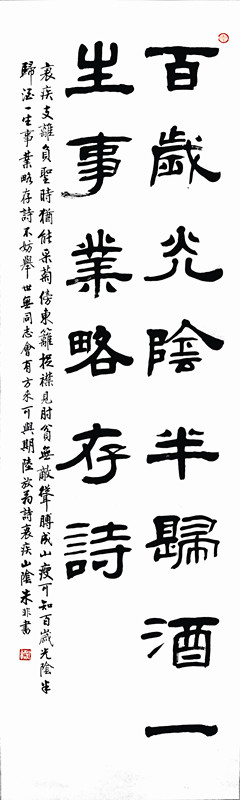 百歲光陰半歸酒一
生事業略存詩
衰疾支離負聖時猶能采菊傍東籬捉襟見肘貧無敵聳膊成山瘦可知百歲光陰半
歸酒一生事業略存詩不妨舉世無同志會有方來可與期陸放翁詩衰疾山陰書